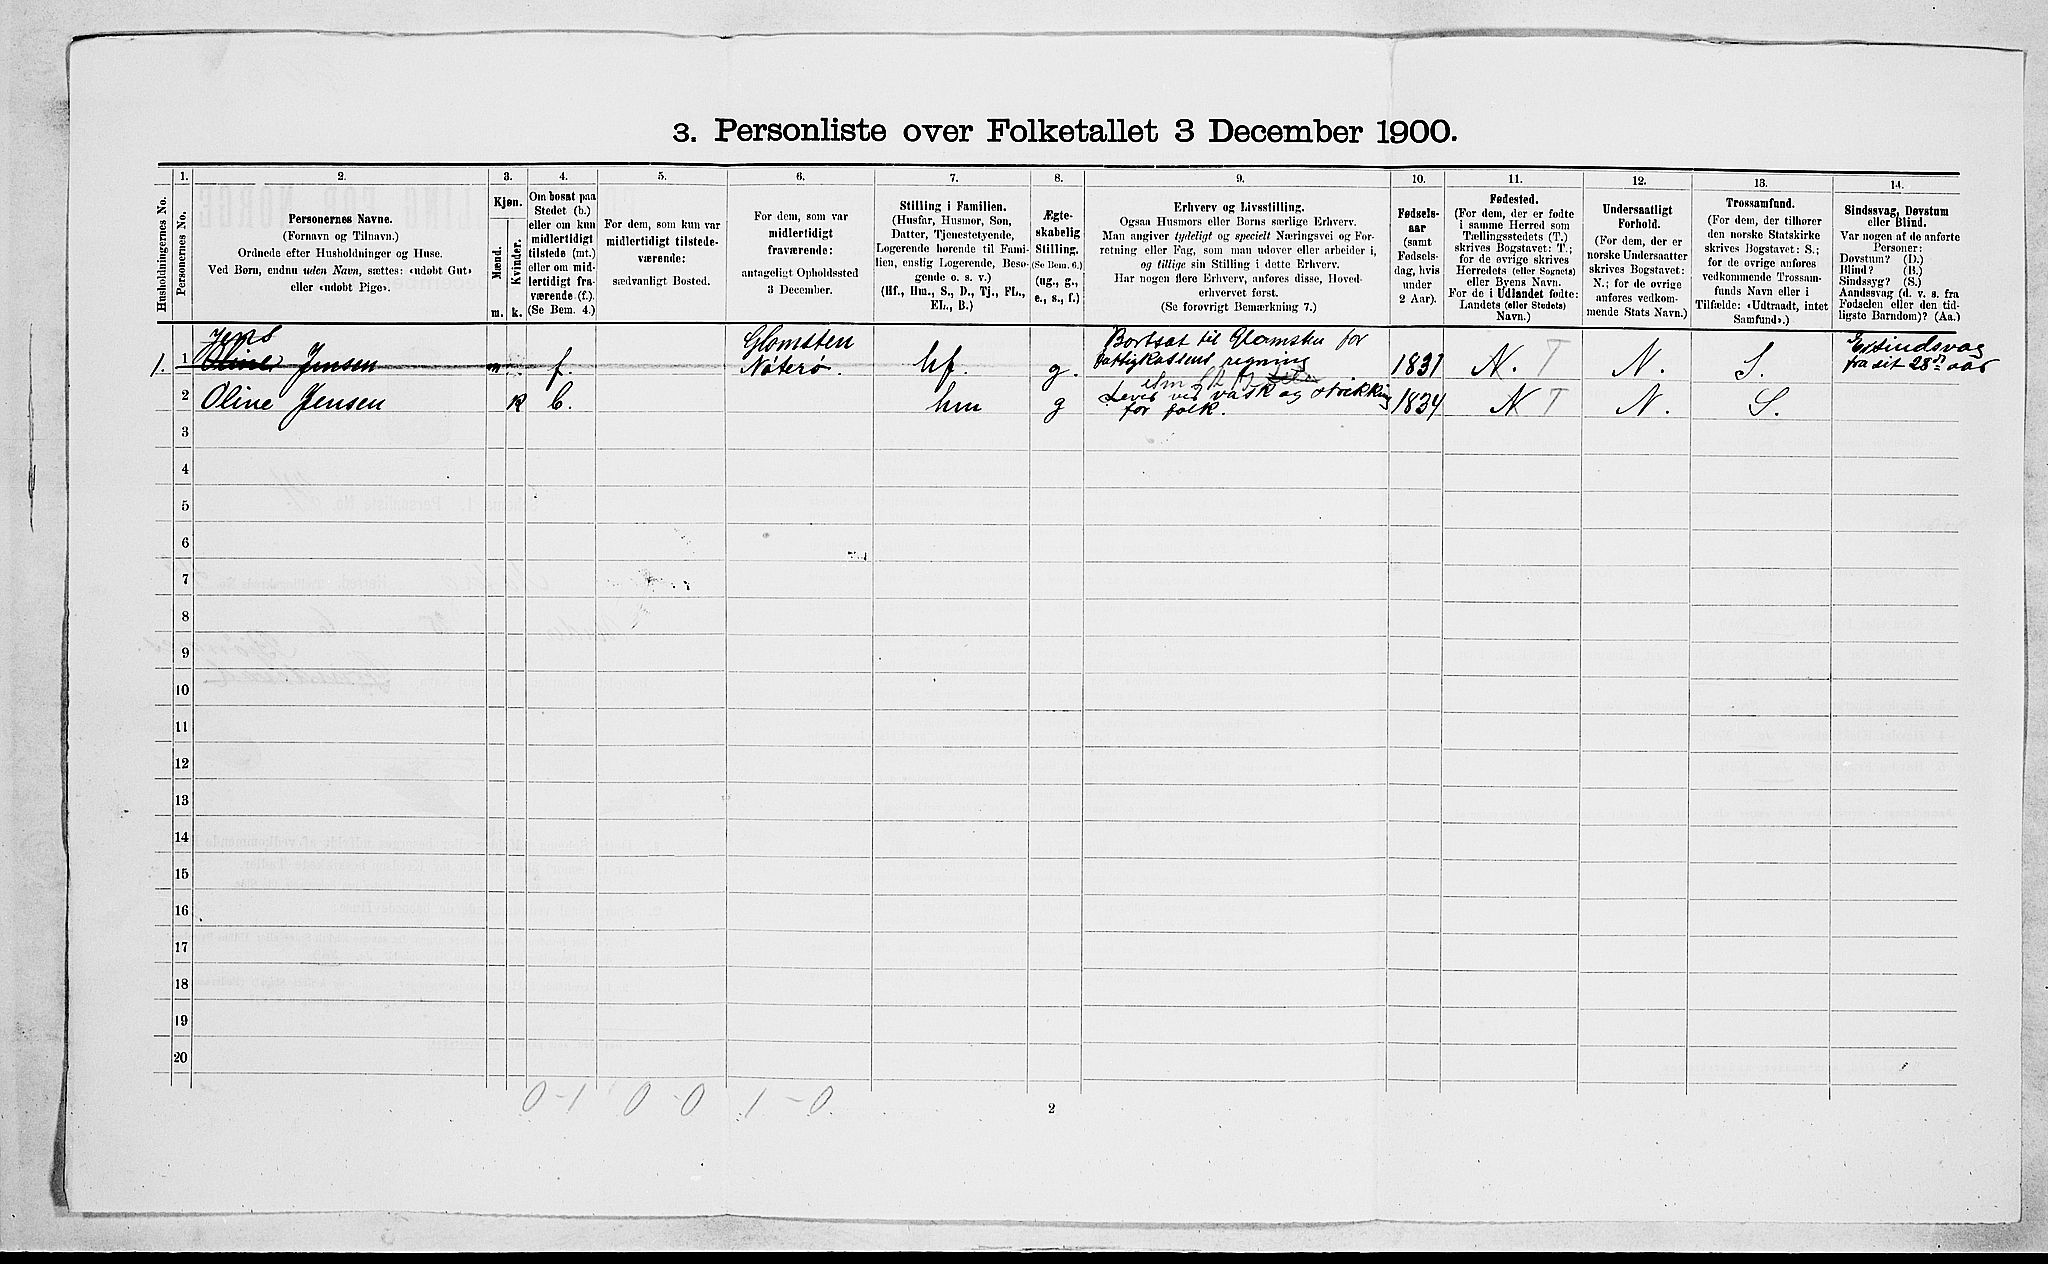 3. Personliste over Folketallet 3 December 1900.
1. 2. 3. 4. 5. 6. 7. 8. 9. 10. 11. 12. 13. 14.
Husholdningernes No.
Personernes No.
Personernes Navne.
(Fornavn og Tilnavn.)
Ordnede efter Husholdninger og Huse.
Ved Børn, endnu uden Navn, sættes: «udøbt Gut»
eller «udøbt Pige».
Kjøn.
Mænd.
Kvinder.
m. k.
Om bosat paa
Stedet (b.)
eller om kun
midlertidigt
tilstede (mt.)
eller om mid-
lertidigt fra-
værende (f.).
(Se Bem. 4.)
For dem, som kun var
midlertidigt tilstede-
værende:
sædvanligt Bosted.
For dem, som var
midlertidigt
fraværende:
antageligt Opholdssted
3 December.
Stilling i Familien.
(Husfar, Husmor, Søn,
Datter, Tjenestetyende,
Logerende hørende til Fami-
lien, enslig Logerende, Besø-
gende o. s. v.)
(Hf., Hm., S., D., Tj., FL.,
EL., B.)
Ægte-
skabelig
Stilling.
(Se Bem. 6.)
(ug., g.,
e., s., f.)
Erhverv og Livsstilling.
Ogsaa Husmors eller Børns særlige Erhverv.
Man angiver tydeligt og specielt Næringsvei og For-
retning eller Fag, som man udøver eller arbeider i,
og tillige sin Stilling i dette Erhverv.
Har nogen flere Erhverv, anføres disse, Hoved-
erhvervet først.
(Se forøvrigt Bemærkning 7.)
Fødsels-
aar
(samt
Fødsels-
dag, hvis
under
2 Aar).
Fødested.
(For dem, der er fødte
i samme Herred som
Tællingsstedets (T.)
skrives Bogstavet: T.;
for de øvrige skrives
Herredets (eller Sognets)
eller Byens Navn.
For de i Udlandet fødte:
Landets (eller Stedets)
Navn.)
Undersaatligt
Forhold.
(For dem, der er
norske Undersaatter
skrives Bogstavet:
N.; for de øvrige
anføres vedkom-
mende Stats Navn.)
Trossamfund.
(For dem, der tilhører
den norske Statskirke
skrives Bogstavet: S.;
for de øvrige anføres
vedkommende Trossam-
funds Navn eller i
Tilfælde: «Udtraadt, intet
Samfund».)
Sindssvag, Døvstum
eller Blind.
Var nogen af de anførte
Personer:
Døvstum? (D.)
Blind? (B.)
Sindssyg? (S.)
Aandssvag (d. v. s. fra
Fødselen eller den tid-
ligste Barndom)? (Aa.)
Jens
1. 1 Oline Jensen m f. Glomsten Nøterø. hf. g. Bortsat til Glomsten for fattigkassens regning 1831 N. T N. S. Er sindsvag fra sit 28de aar
2 Oline Jensen k b. hm g Lever ved vask og strikking for folk. 1834 N T N. S.
3
4
5
6
7
8
9
10
11
12
13
14
15
16
17
18
19
20
0-1 0-0 1-0
2